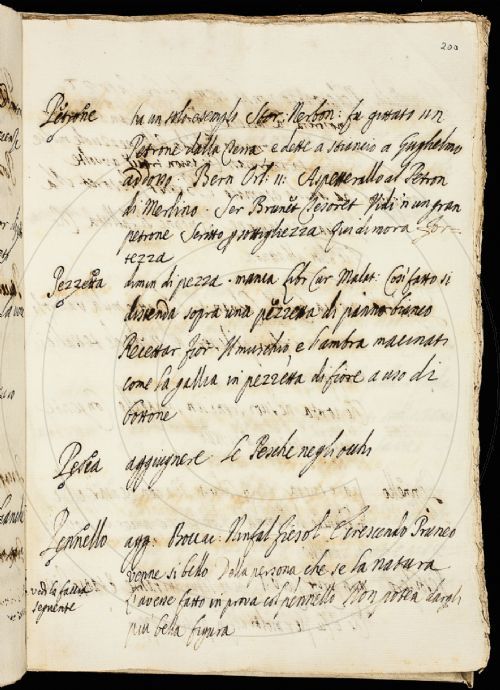 200
Petrone ha un solo esempio Stor. Nerbon: fu gittato un
Petrone dalla e dette a a Guglielmo
addosso. Bern Orl. 11. Aspetterallo al Petron
di Merlino. Ser Brunet Tesoret Vidi 'n un gran
petrone Scritto sottigliezza Qui dimora For-
tezza
Pezzetta dimin di pezza. manca Libr Cur Malat: Cosi fatto si
distenda sopra una pezzetta di panno bianco
Ricettar Fior Il muschio, e l'ambra macinati
come la gallia in pezzetta di fiore a uso di
bottone
Pesca aggiugnere Le Pesche negli occhi
Pennello agg. Boccac. Ninfal Fiesol E crescendo Pruneo
venne si bello Della persona che se la natura
vedi la faccia
seguente
L'avesse fatto in prova col pennello Non potea dargli
più bella figura